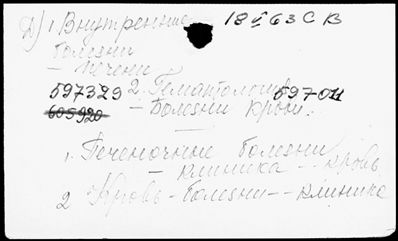 Д) 1. Внутренние 18 V 63 С В
болезни
– печени
597329 2. Гематология 597011
605920 – Болезни крови.
1. Печеночные болезни
– клиника – кровь
2 Кровь – болезни – клиника